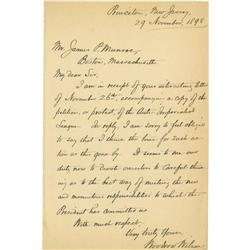 Princeton, New Jersey,
29 November, 1898
Mr. James P. Munroe,
Boston, Massachusetts
My dear Sir,
I am in receipt of your interesting letter
of November 26th, accompanying a copy of the
petition, or protest, of the Anti-Imperialist
League. In reply, I am sorry to feel obliged
to say that I think the time for such ac-
tion as this gone by. It seems to me our
duty now to devote ourselves to careful think-
ing as to the best way of meeting the new
and momentous responsibilities to which the
President has committed us.
With much respect,
Very truly Yours,
Woodrow Wilson